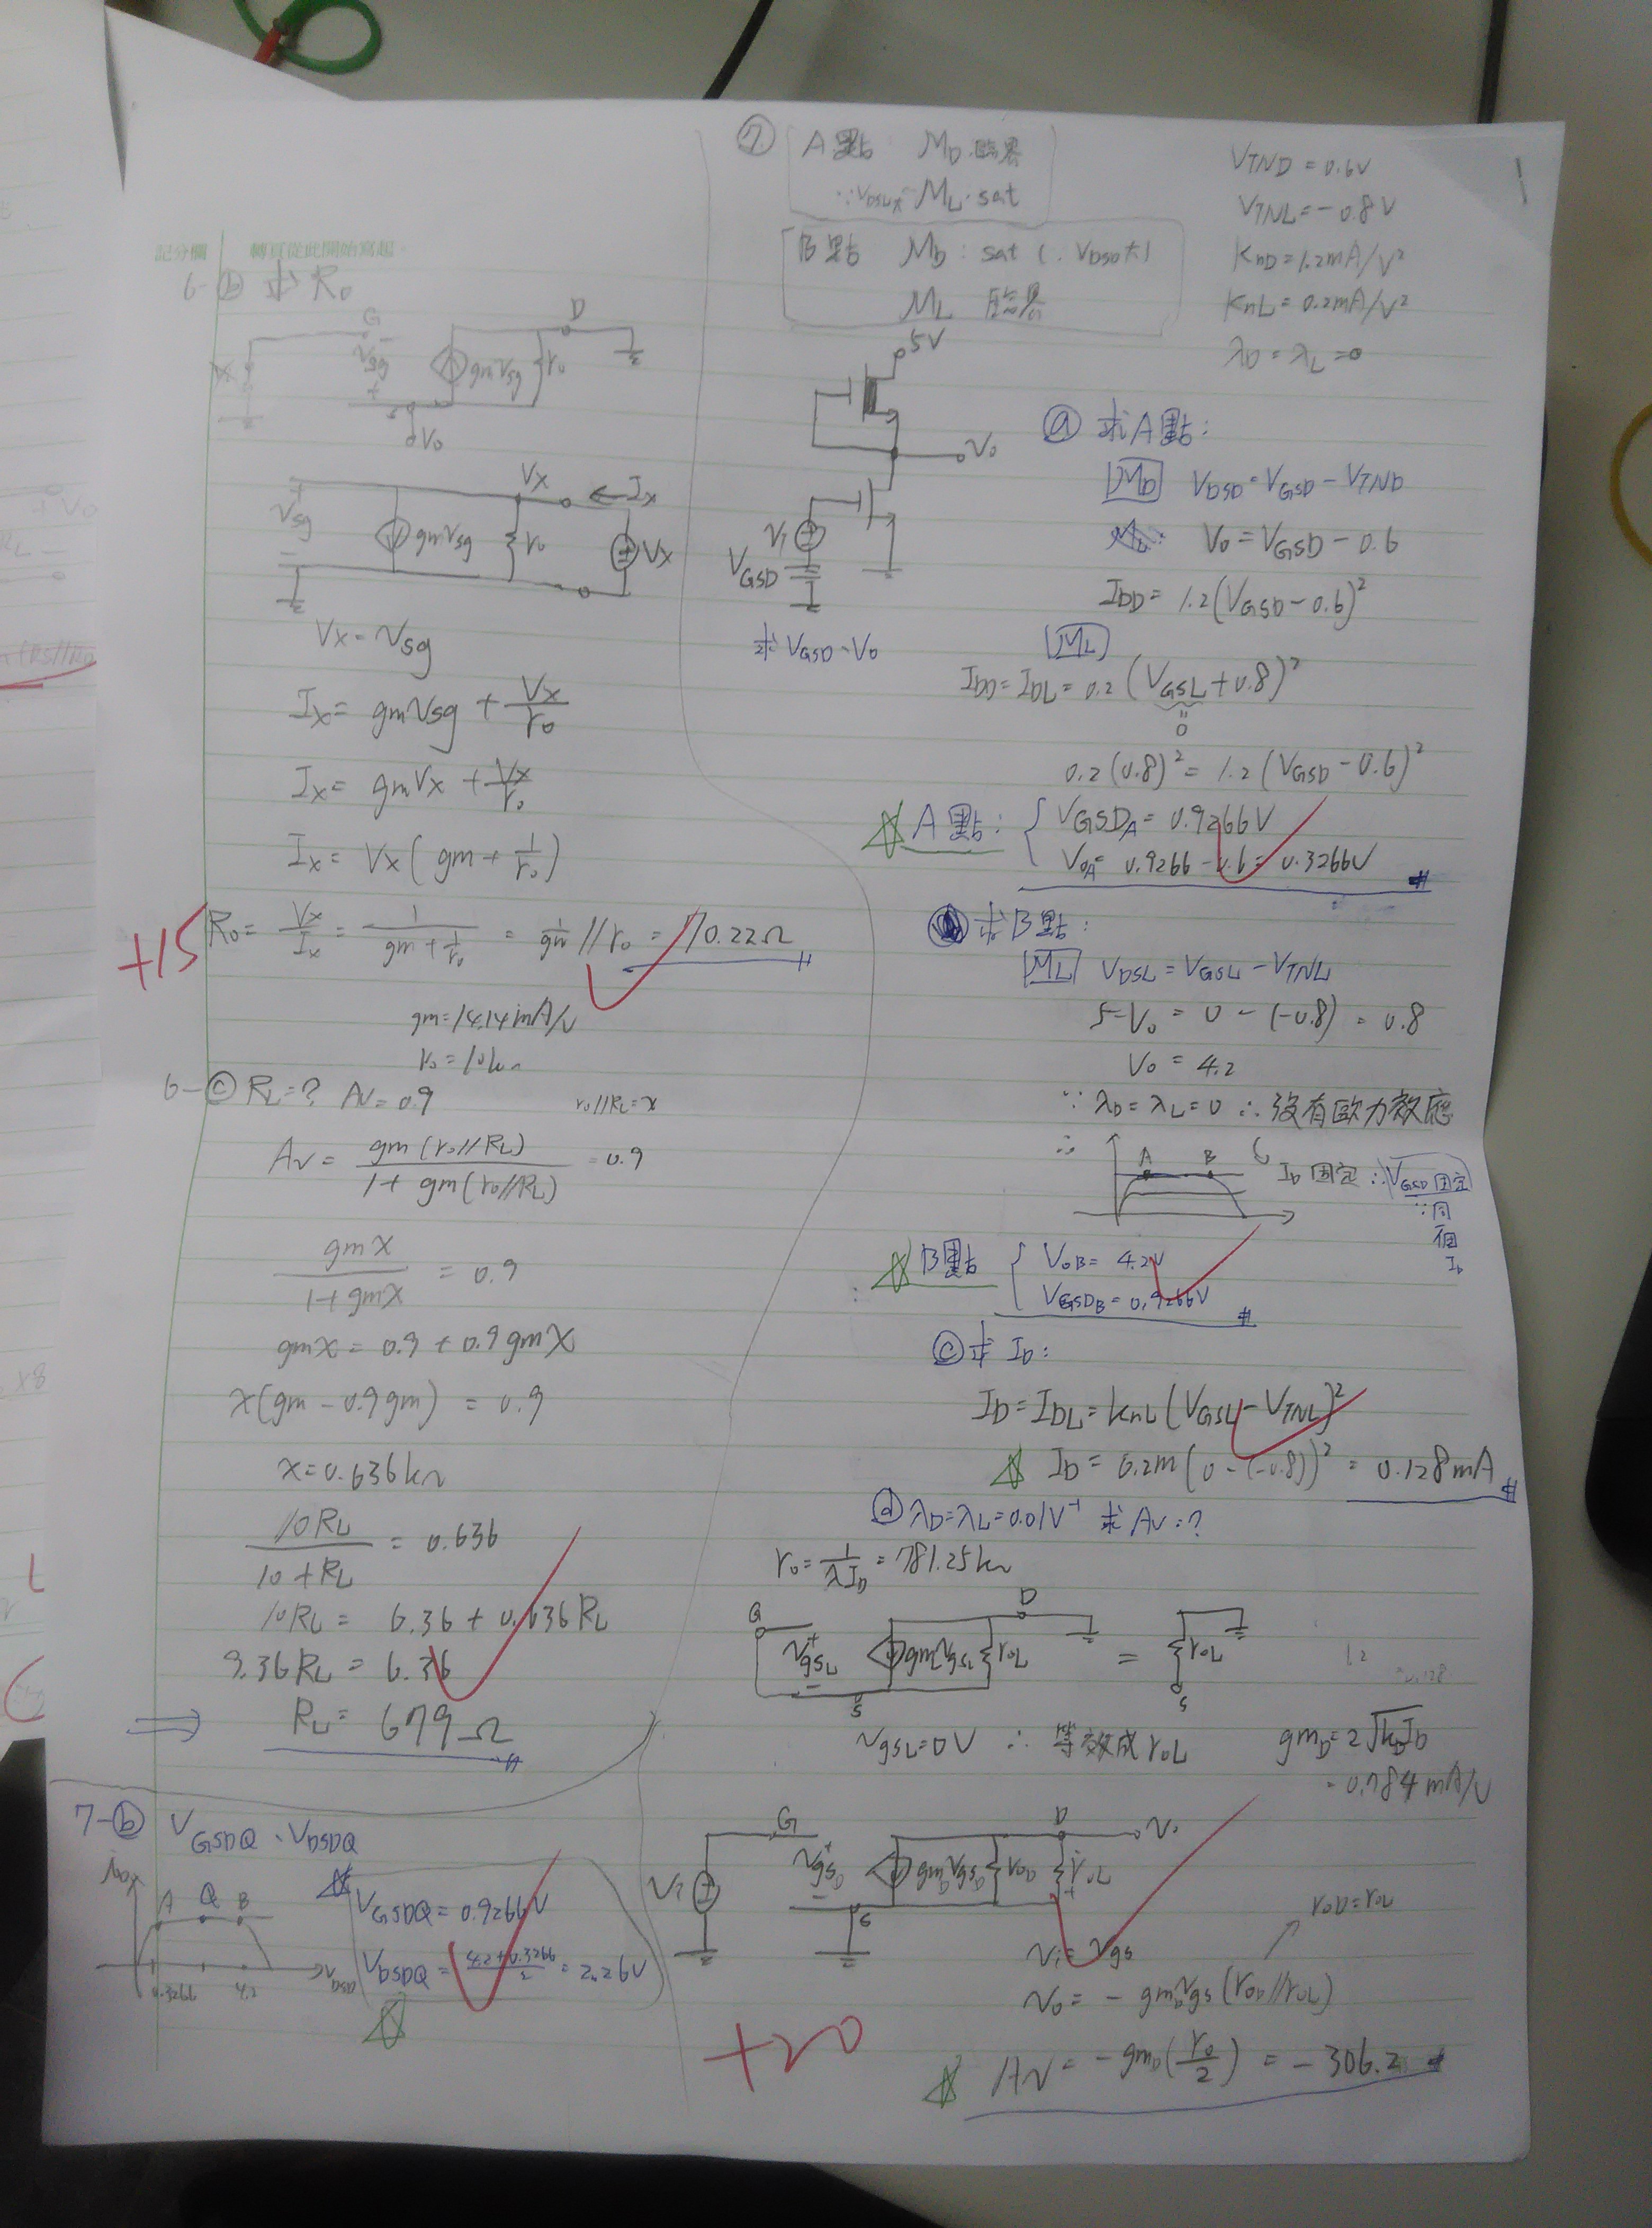 記分欄 轉頁從此開始寫起。
6-ⓑ 求 R₀
G
D
Vsg
gmVsg
r₀
V₀
Vx ← Ix
Vsg
gmVsg
r₀
Vx
Vx = Vsg
Ix = gmVsg + Vx/r₀
Ix = gmVx + Vx/r₀
Ix = Vx(gm + 1/r₀)
+15
R₀ = Vx/Ix = 1/(gm + 1/r₀) = 1/gm // r₀ = 70.22Ω
gm = 14.14mA/V
r₀ = 10k
6-ⓒ RL = ? Av = 0.9 r₀//RL = x
Av = gm(r₀//RL)/(1 + gm(r₀//RL)) = 0.9
gmX/(1+gmX) = 0.9
gmX = 0.9 + 0.9gmX
x(gm - 0.9gm) = 0.9
x = 0.636kΩ
10RL/(10+RL) = 0.636
10RL = 6.36 + 0.636RL
9.36RL = 6.36
⇒ RL = 679Ω
7-ⓑ VGSDQ、VDSDQ
A Q B
0.3266 4.2
VGSDQ = 0.9266V
VDSDQ = (4.2+0.3266)/2 = 2.26V
⑦ A點 MD 臨界
ML: sat
B點 MD: sat (∵VDSD大)
ML 臨界
VTND = 0.6V
VTNL = -0.8V
KnD = 1.2mA/V²
KnL = 0.2mA/V²
λD = λL = 0
5V
V₀
Vi
VGSD
求 VGSD、V₀
ⓐ 求A點:
MD VDSD = VGSD - VTND
V₀ = VGSD - 0.6
IDD = 1.2(VGSD - 0.6)²
ML
IDD = IDL = 0.2(VGSL + 0.8)²
0
0.2(0.8)² = 1.2(VGSD - 0.6)²
A點: VGSDA = 0.9266V
V₀A = 0.9266 - 0.6 = 0.3266V
求B點:
ML VDSL = VGSL - VTNL
5 - V₀ = 0 - (-0.8) = 0.8
V₀ = 4.2
∵ λD = λL = 0 ∴ 沒有歐力效應
∴
A B
ID 固定 ∴ VGSD固定
∵同個ID
B點 V₀B = 4.2V
VGSDB = 0.9266V
ⓒ 求 ID:
ID = IDL = KnL(VGSL - VTNL)²
ID = 0.2m(0-(-0.8))² = 0.128mA
ⓓ λD = λL = 0.01V⁻¹ 求 Av = ?
r₀ = 1/λID = 781.25k
G
D
VgsL
gmVgsL
r₀L
S
=
r₀L
S
VgsL = 0V ∴ 等效成 r₀L
gmD = 2√(kDID)
= 0.784mA/V
G
D
V₀
Vi
VgsD
gmDVgsD
r₀D
r₀L
S
Vi = Vgs
r₀D = r₀L
V₀ = -gmDVgs(r₀D//r₀L)
+20
Av = -gmD(r₀/2) = -306.2